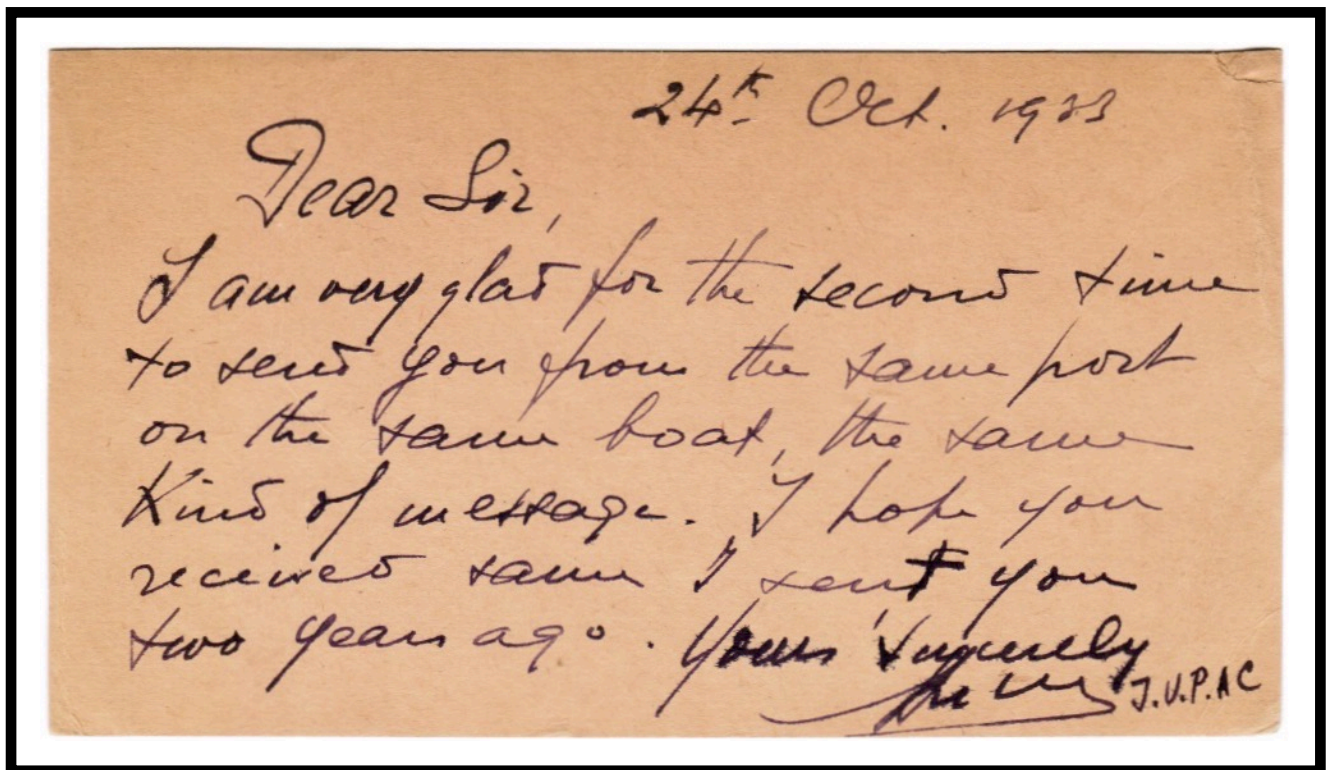 24th Oct. 1933
Dear Sir,
I am very glad for the second time
to send you from the same port
on the same boat, the same
Kind of message. I hope you
received same I sent you
two years ago. Yours sincerely
J.U.P.A C